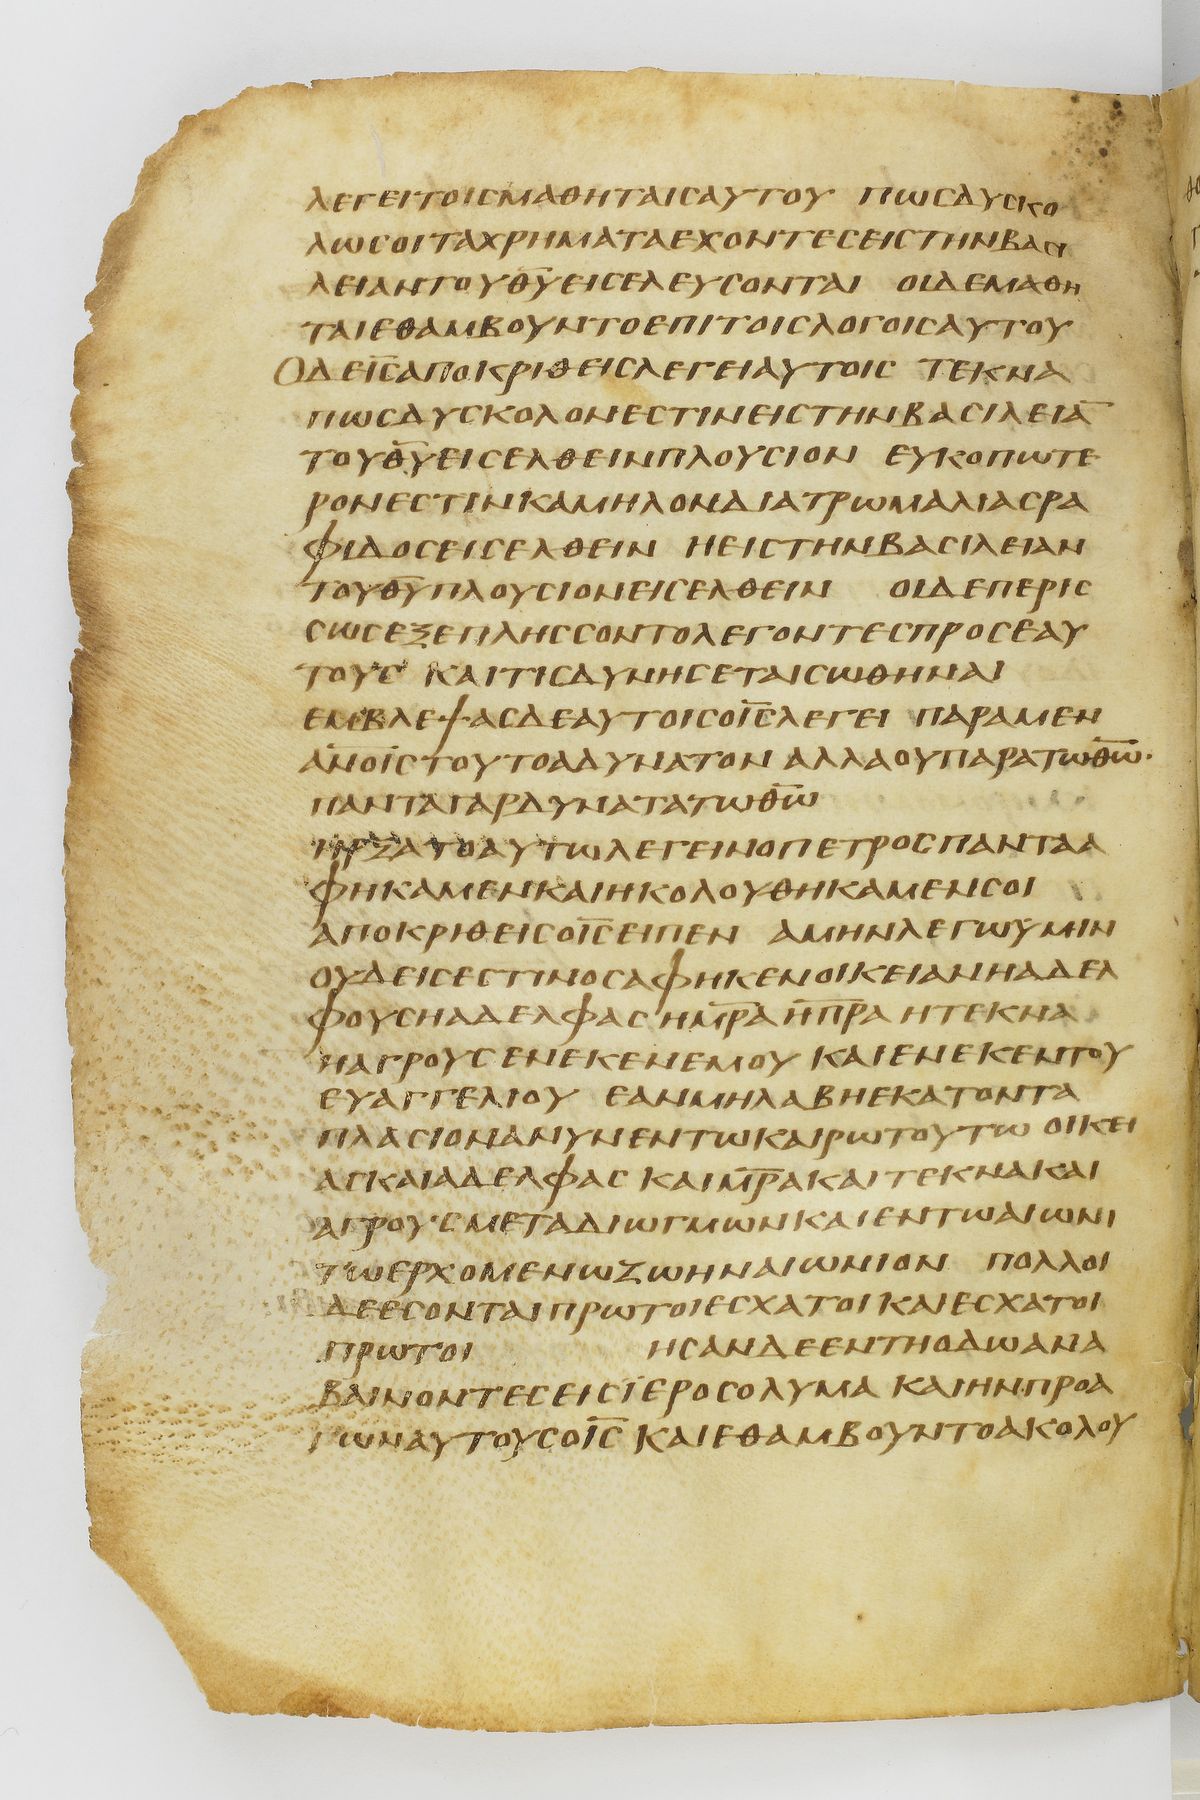 ΛΕΓΕΙΤΟΙΣΜΑΘΗΤΑΙΣΑΥΤΟΥ ΠΩΣΔΥΣΚΟ
ΛΩΣΟΙΤΑΧΡΗΜΑΤΑΕΧΟΝΤΕΣΕΙΣΤΗΝΒΑΣΙ
ΛΕΙΑΝΤΟΥΘ̅Υ̅ΕΙΣΕΛΕΥΣΟΝΤΑΙ ΟΙΔΕΜΑΘΗ
ΤΑΙΕΘΑΜΒΟΥΝΤΟΕΠΙΤΟΙΣΛΟΓΟΙΣΑΥΤΟΥ
ΟΔΕΙ̅Σ̅ΑΠΟΚΡΙΘΕΙΣΛΕΓΕΙΑΥΤΟΙΣ ΤΕΚΝΑ
ΠΩΣΔΥΣΚΟΛΟΝΕΣΤΙΝΕΙΣΤΗΝΒΑΣΙΛΕΙΑ̅
ΤΟΥΘ̅Υ̅ΕΙΣΕΛΘΕΙΝΠΛΟΥΣΙΟΝ ΕΥΚΟΠΩΤΕ
ΡΟΝΕΣΤΙΝΚΑΜΗΛΟΝΔΙΑΤΡΩΜΑΛΙΑΣΡΑ
ΦΙΔΟΣΕΙΣΕΛΘΕΙΝ ΗΕΙΣΤΗΝΒΑΣΙΛΕΙΑΝ
ΤΟΥΘ̅Υ̅ΠΛΟΥΣΙΟΝΕΙΣΕΛΘΕΙΝ ΟΙΔΕΠΕΡΙΣ
ΣΩΣΕΞΕΠΛΗΣΣΟΝΤΟΛΕΓΟΝΤΕΣΠΡΟΣΕΑΥ
ΤΟΥΣ ΚΑΙΤΙΣΔΥΝΗΣΕΤΑΙΣΩΘΗΝΑΙ
ΕΜΒΛΕΨΑΣΔΕΑΥΤΟΙΣΟΙ̅Σ̅ΛΕΓΕΙ ΠΑΡΑΜΕΝ
ΑΝΟΙΣΤΟΥΤΟΑΔΥΝΑΤΟΝΑΛΛΑΟΥΠΑΡΑΤΩΘ̅Ω̅·
ΠΑΝΤΑΓΑΡΔΥΝΑΤΑΤΩΘ̅Ω̅
ΗΡΞΑΤΟΑΥΤΩΛΕΓΕΙΝΟΠΕΤΡΟΣΠΑΝΤΑΑ
ΦΗΚΑΜΕΝΚΑΙΗΚΟΛΟΥΘΗΚΑΜΕΝΣΟΙ
ΑΠΟΚΡΙΘΕΙΣΟΙ̅Σ̅ΕΙΠΕΝ ΑΜΗΝΛΕΓΩΥΜΙΝ
ΟΥΔΕΙΣΕΣΤΙΝΟΣΑΦΗΚΕΝΟΙΚΕΙΑΝΗΑΔΕΛ
ΦΟΥΣΗΑΔΕΛΦΑΣΗΜ̅Ρ̅Α̅ΗΠ̅Ρ̅Α̅ΗΤΕΚΝΑ
ΗΑΓΡΟΥΣΕΝΕΚΕΝΕΜΟΥ ΚΑΙΕΝΕΚΕΝΤΟΥ
ΕΥΑΓΓΕΛΙΟΥ ΕΑΝΜΗΛΑΒΗΕΚΑΤΟΝΤΑ
ΠΛΑΣΙΟΝΑΝΥΝΕΝΤΩΚΑΙΡΩΤΟΥΤΩ ΟΙΚΕΙ
ΑΣΚΑΙΑΔΕΛΦΑΣ ΚΑΙΜ̅Ρ̅Α̅ΚΑΙΤΕΚΝΑΚΑΙ
ΑΓΡΟΥΣΜΕΤΑΔΙΩΓΜΩΝΚΑΙΕΝΤΩΑΙΩΝΙ
ΤΩΕΡΧΟΜΕΝΩΖΩΗΝΑΙΩΝΙΟΝ ΠΟΛΛΟΙ
ΔΕΕΣΟΝΤΑΙΠΡΩΤΟΙΕΣΧΑΤΟΙΚΑΙΕΣΧΑΤΟΙ
ΠΡΩΤΟΙ ΗΣΑΝΔΕΕΝΤΗΟΔΩΑΝΑ
ΒΑΙΝΟΝΤΕΣΕΙΣΙΕΡΟΣΟΛΥΜΑ ΚΑΙΗΝΠΡΟΑ
ΓΩΝΑΥΤΟΥΣΟΙ̅Σ̅ ΚΑΙΕΘΑΜΒΟΥΝΤΟΑΚΟΛΟΥ